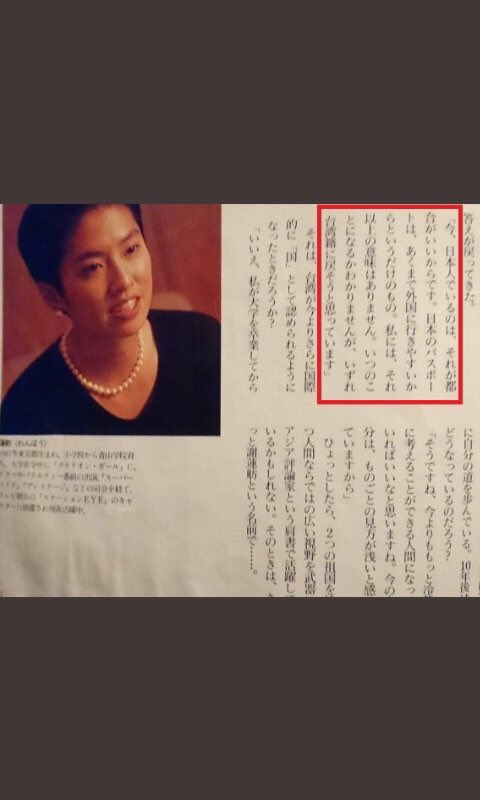 答えが戻ってきた。
「今、日本人でいるのは、それが都
合がいいからです。日本のパスポー
トは、あくまで外国に行きやすいか
らというだけのもの。私には、それ
以上の意味はありません。いつのこ
とになるかわかりませんが、いずれ
台湾籍に戻そうと思っています」
それは、台湾が今よりさらに国際
的に「国」として認められるように
なったときだろうか？
「いいえ、私が大学を卒業してから
に自分の道を歩んでいる。10年後
どうなっているのだろう？
「そうですね、今よりももっと冷
に考えることができる人間になっ
いればいいなと思いますね。今の
分は、ものごとの見方が浅いと感
ていますから」
ひょっとしたら、2つの祖国を
つ人間ならではの広い視野を武器
アジア評論家という肩書で活躍し
いるかもしれない。そのときは、
っと謝蓮舫という名前で……。
蓮舫（れんほう）
年東京都生まれ。小学校から青山学院育
ち。大学在学中に「クラリオン・ガール」に。
ドラマやバラエティー番組の出演、「スーパー
ワイド」「プレステージ」などの司会を経て、
テレビ朝日の「ステーションEYE」のキャ
スターに抜擢され現在活躍中。